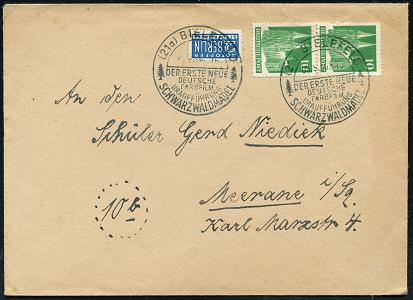 (21a) BIELEFELD
DER ERSTE NEUE
DEUTSCHE
FARBFILM
URAUFFÜHRUNG
SCHWARZWALDMÄDEL
NOTOPFER
2 BERLIN
STEUERMARKE
10
10
(21a) BIELEFELD
DER ERSTE NEUE
DEUTSCHE
FARBFILM
URAUFFÜHRUNG
SCHWARZWALDMÄDEL
An den
Schüler Gerd Niediek
Meerane i/Sa.
Karl Marxstr 4.
10b